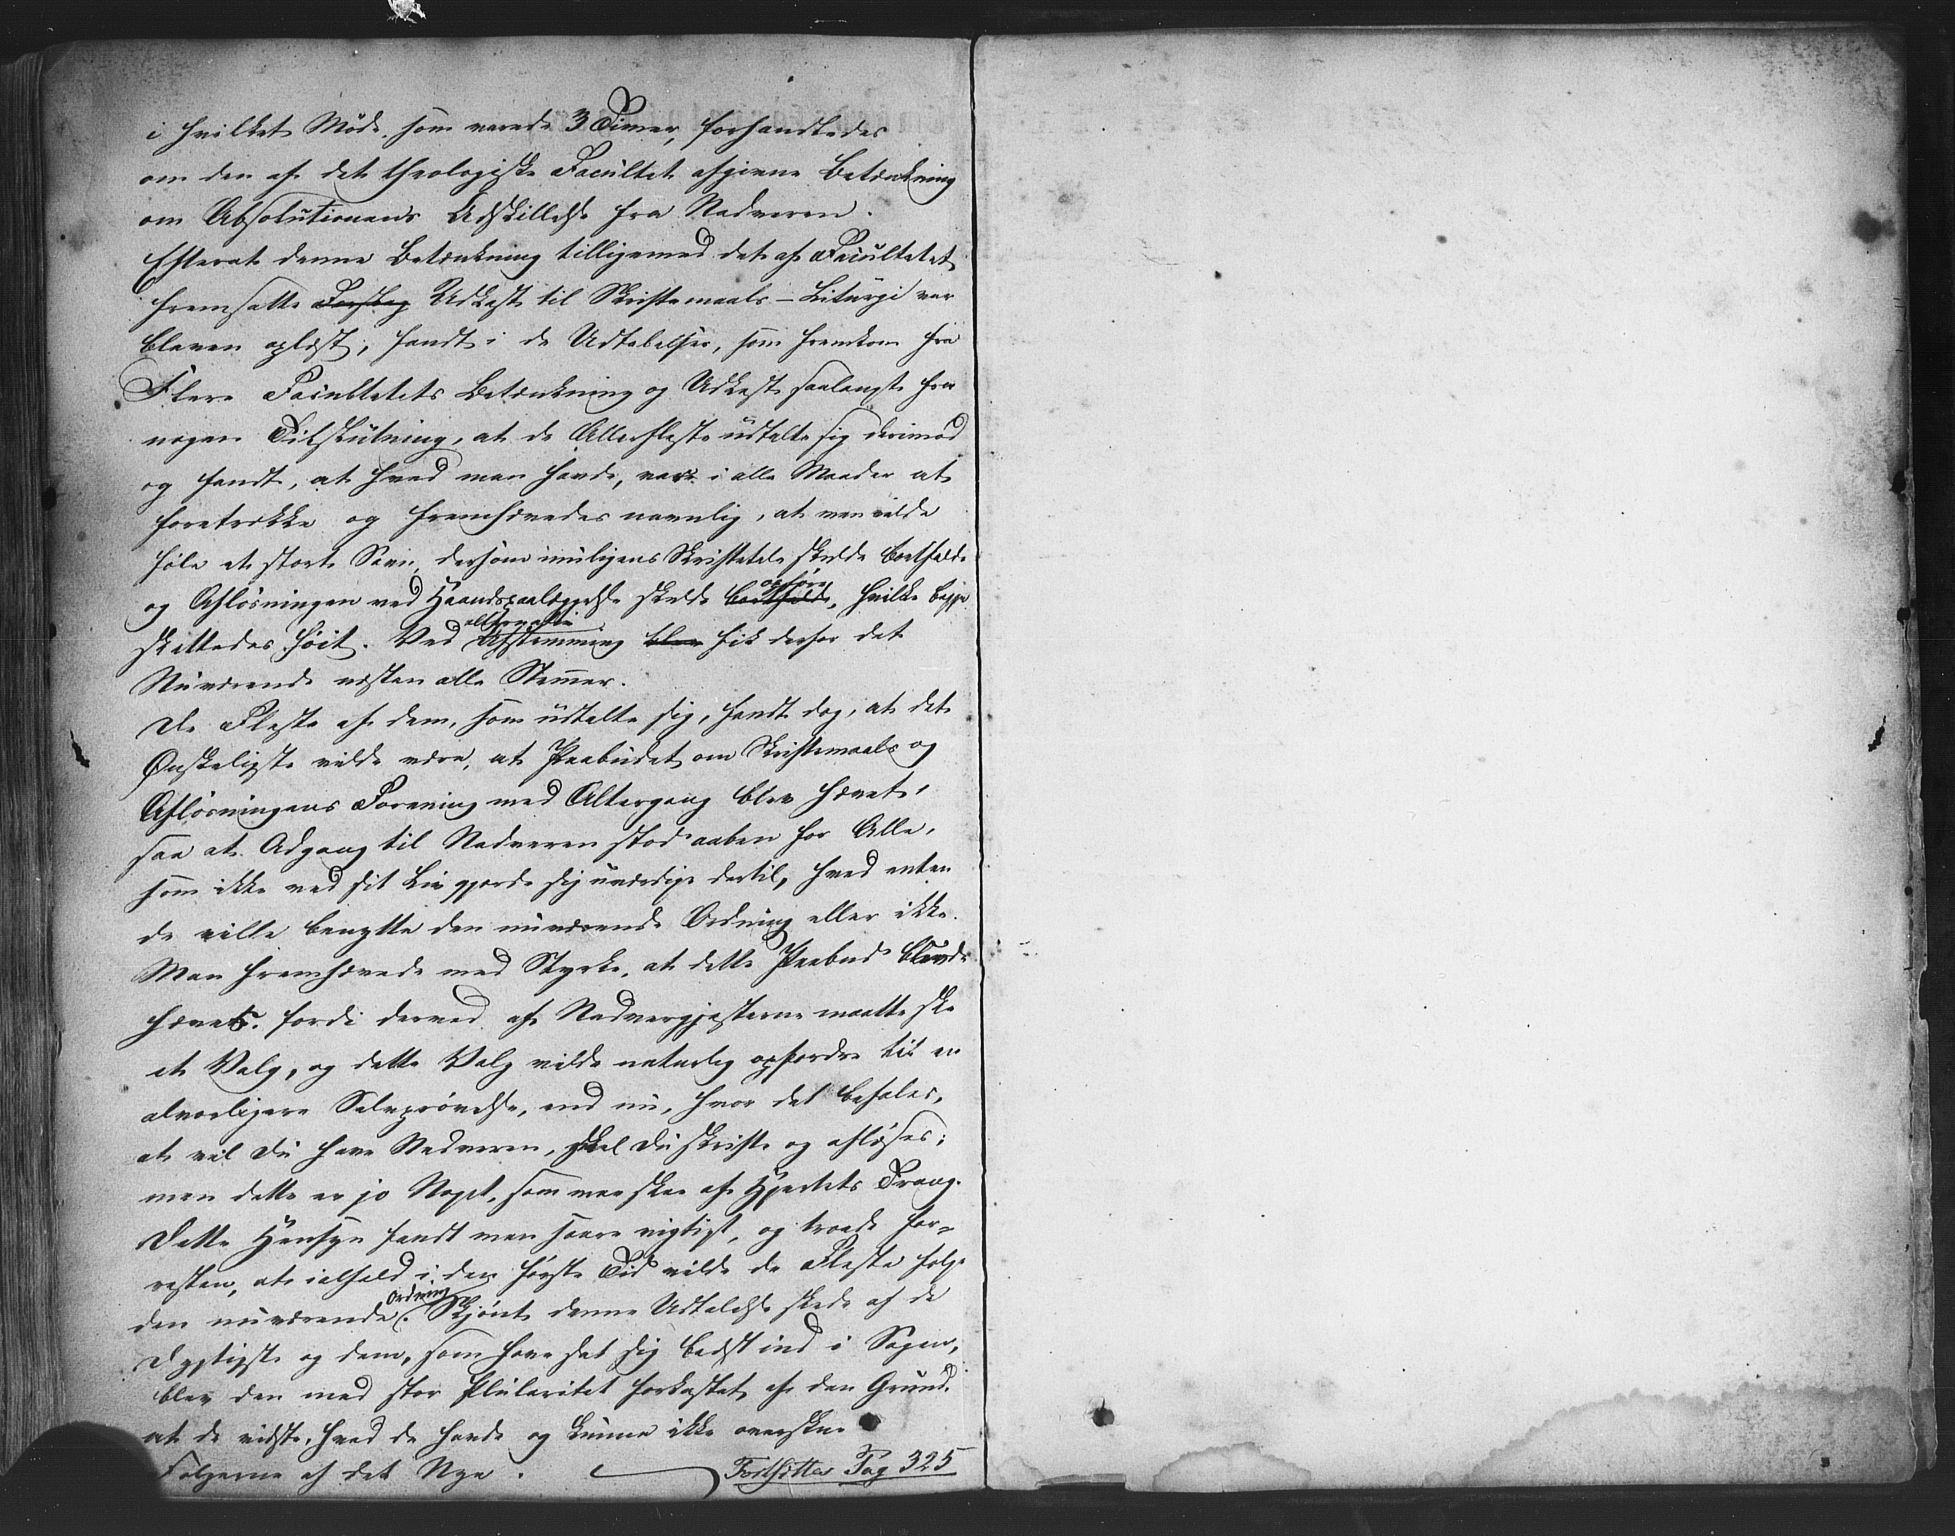 i hvilket Møde, som varede 3 Timer, forhandledes
om den af det theologiske Facultet afgivne Betænkning
om Absolutionens Adskillelse fra Nadveren.
Efterat denne Betænkning tilligemed det af Facultetet
fremsatte Forslag Udkast til Skriftemaals-Liturgi var
bleven oplæst, fandt i de Udtalelser, som fremkom fra
Flere Facultetets Betænkning og Udkast saalangt fra
nogen Tilslutning, at de Allerfleste udtalte sig derimod
og fandt, at hvad man havde, var i alle Maader at
foretrække og fremhævedes navnlig, at man vilde
føle et stort Savn, dersom muligens Skriftetale skulde bortfalde
og Afløsningen ved Haandspaalæggelse skulde bortfalde ophøre, hvilke begge
skattedes høit. Ved alternativ Afstemning blev fik derfor det
Nuværende næsten alle Stemmer.
De Fleste af dem, som udtalte sig, fandt dog, at det
Ønskeligste vilde være, at Paabudet om Skriftemaals og
Afløsningens Forening med Altergang blev hævet,
saa at Adgang til Nadveren stod aaben for Alle,
som ikke ved sit Liv gjorde sig uværdige dertil, hvad enten
de ville benytte den nuværende Ordning eller ikke.
Man fremhævede med Styrke, at dette Paabud burde
hæves, fordi derved af Nadvergjæsterne maatte ske
et Valg, og dette Valg vilde naturlig opfordre til en
alvorligere Selvprøvelse, end nu, hvor det befales,
at vil Du have Nadveren, skal Du skrifte og afløses;
men dette er jo Noget, som maa skee af Hjertets Trang.
Dette Hensyn fandt man saare vigtigt, og troede for-
resten, at ialfald i den første Tid vilde de Fleste følge
den nuværende Ordning. Skjønt denne Udtalelse skede af de
Dygtigste og dem, som have sat sig bedst ind i Sagen,
blev den med stor Pluralitet forkastet af den Grund,
at de vidste, hvad de havde og kunne ikke overskue
Følgerne af det Nye.
Fortsættes Pag 325